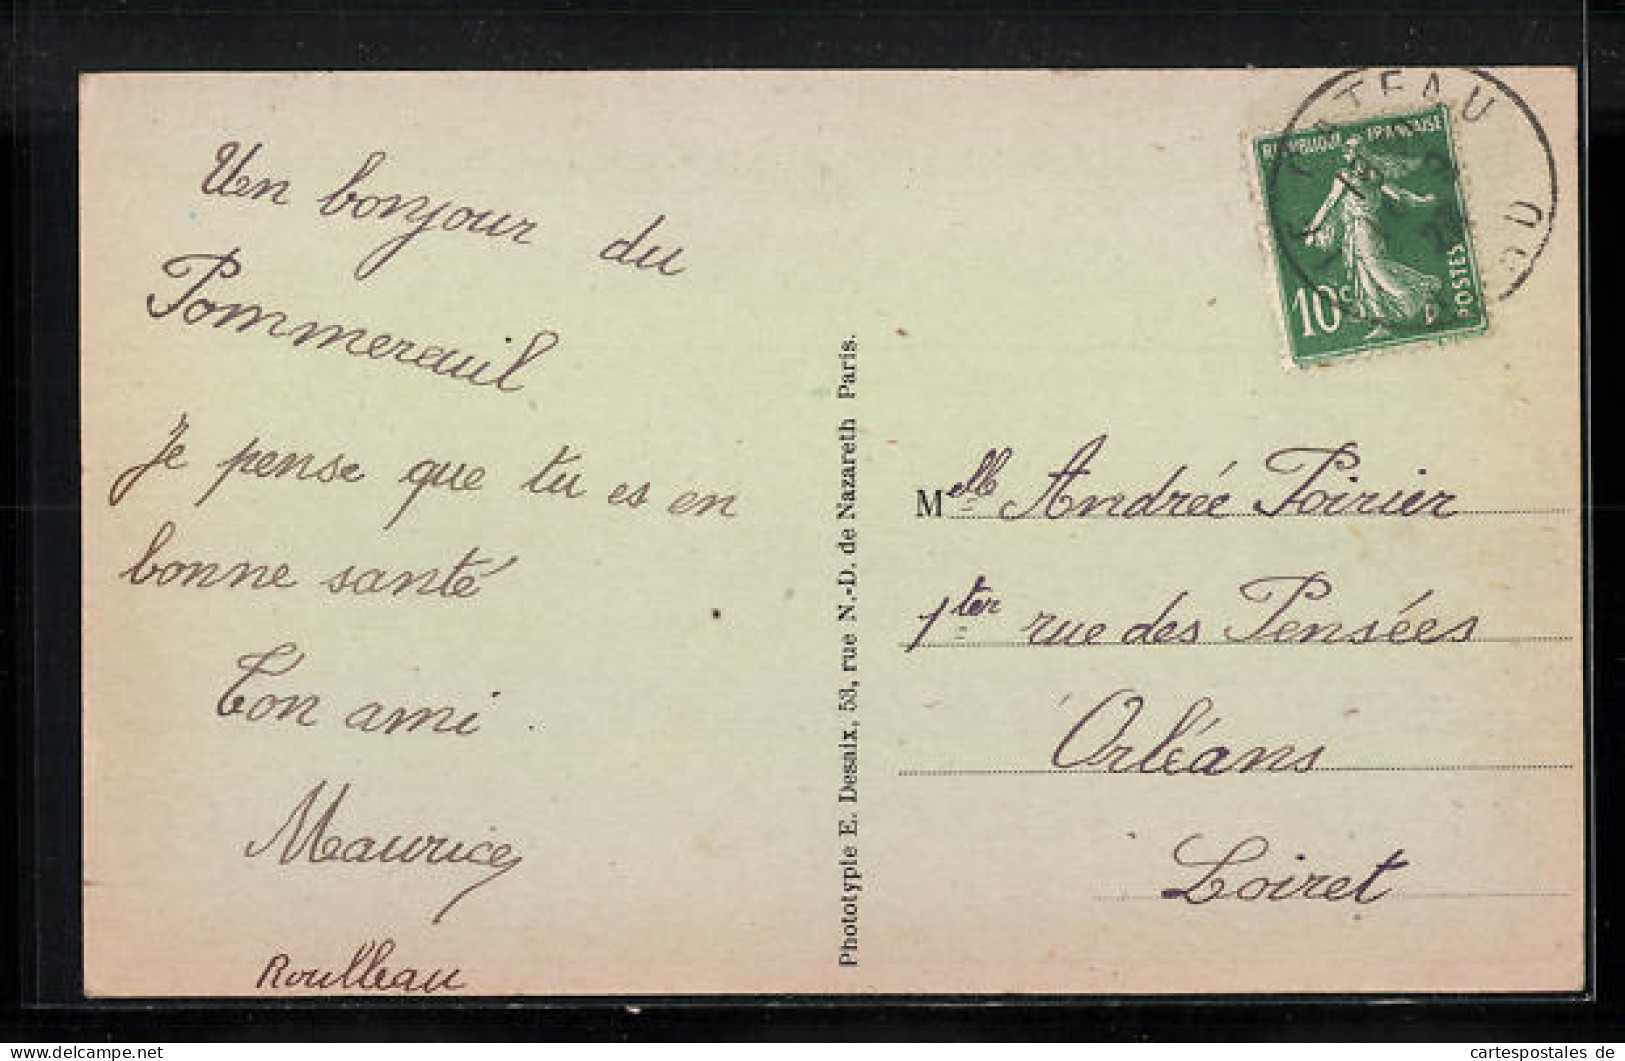 Un bonjour du
Pommereuil
Je pense que tu es en
bonne santé
Ton ami.
Maurice
Roulleau
Phototypie E. Desaix, 53, rue N.-D. de Nazareth Paris.
REPUBLIQUE FRANÇAISE
10c
POSTES
Melle Andrée Poirier
1ter rue des Pensées
Orléans
Loiret
cartespostales de